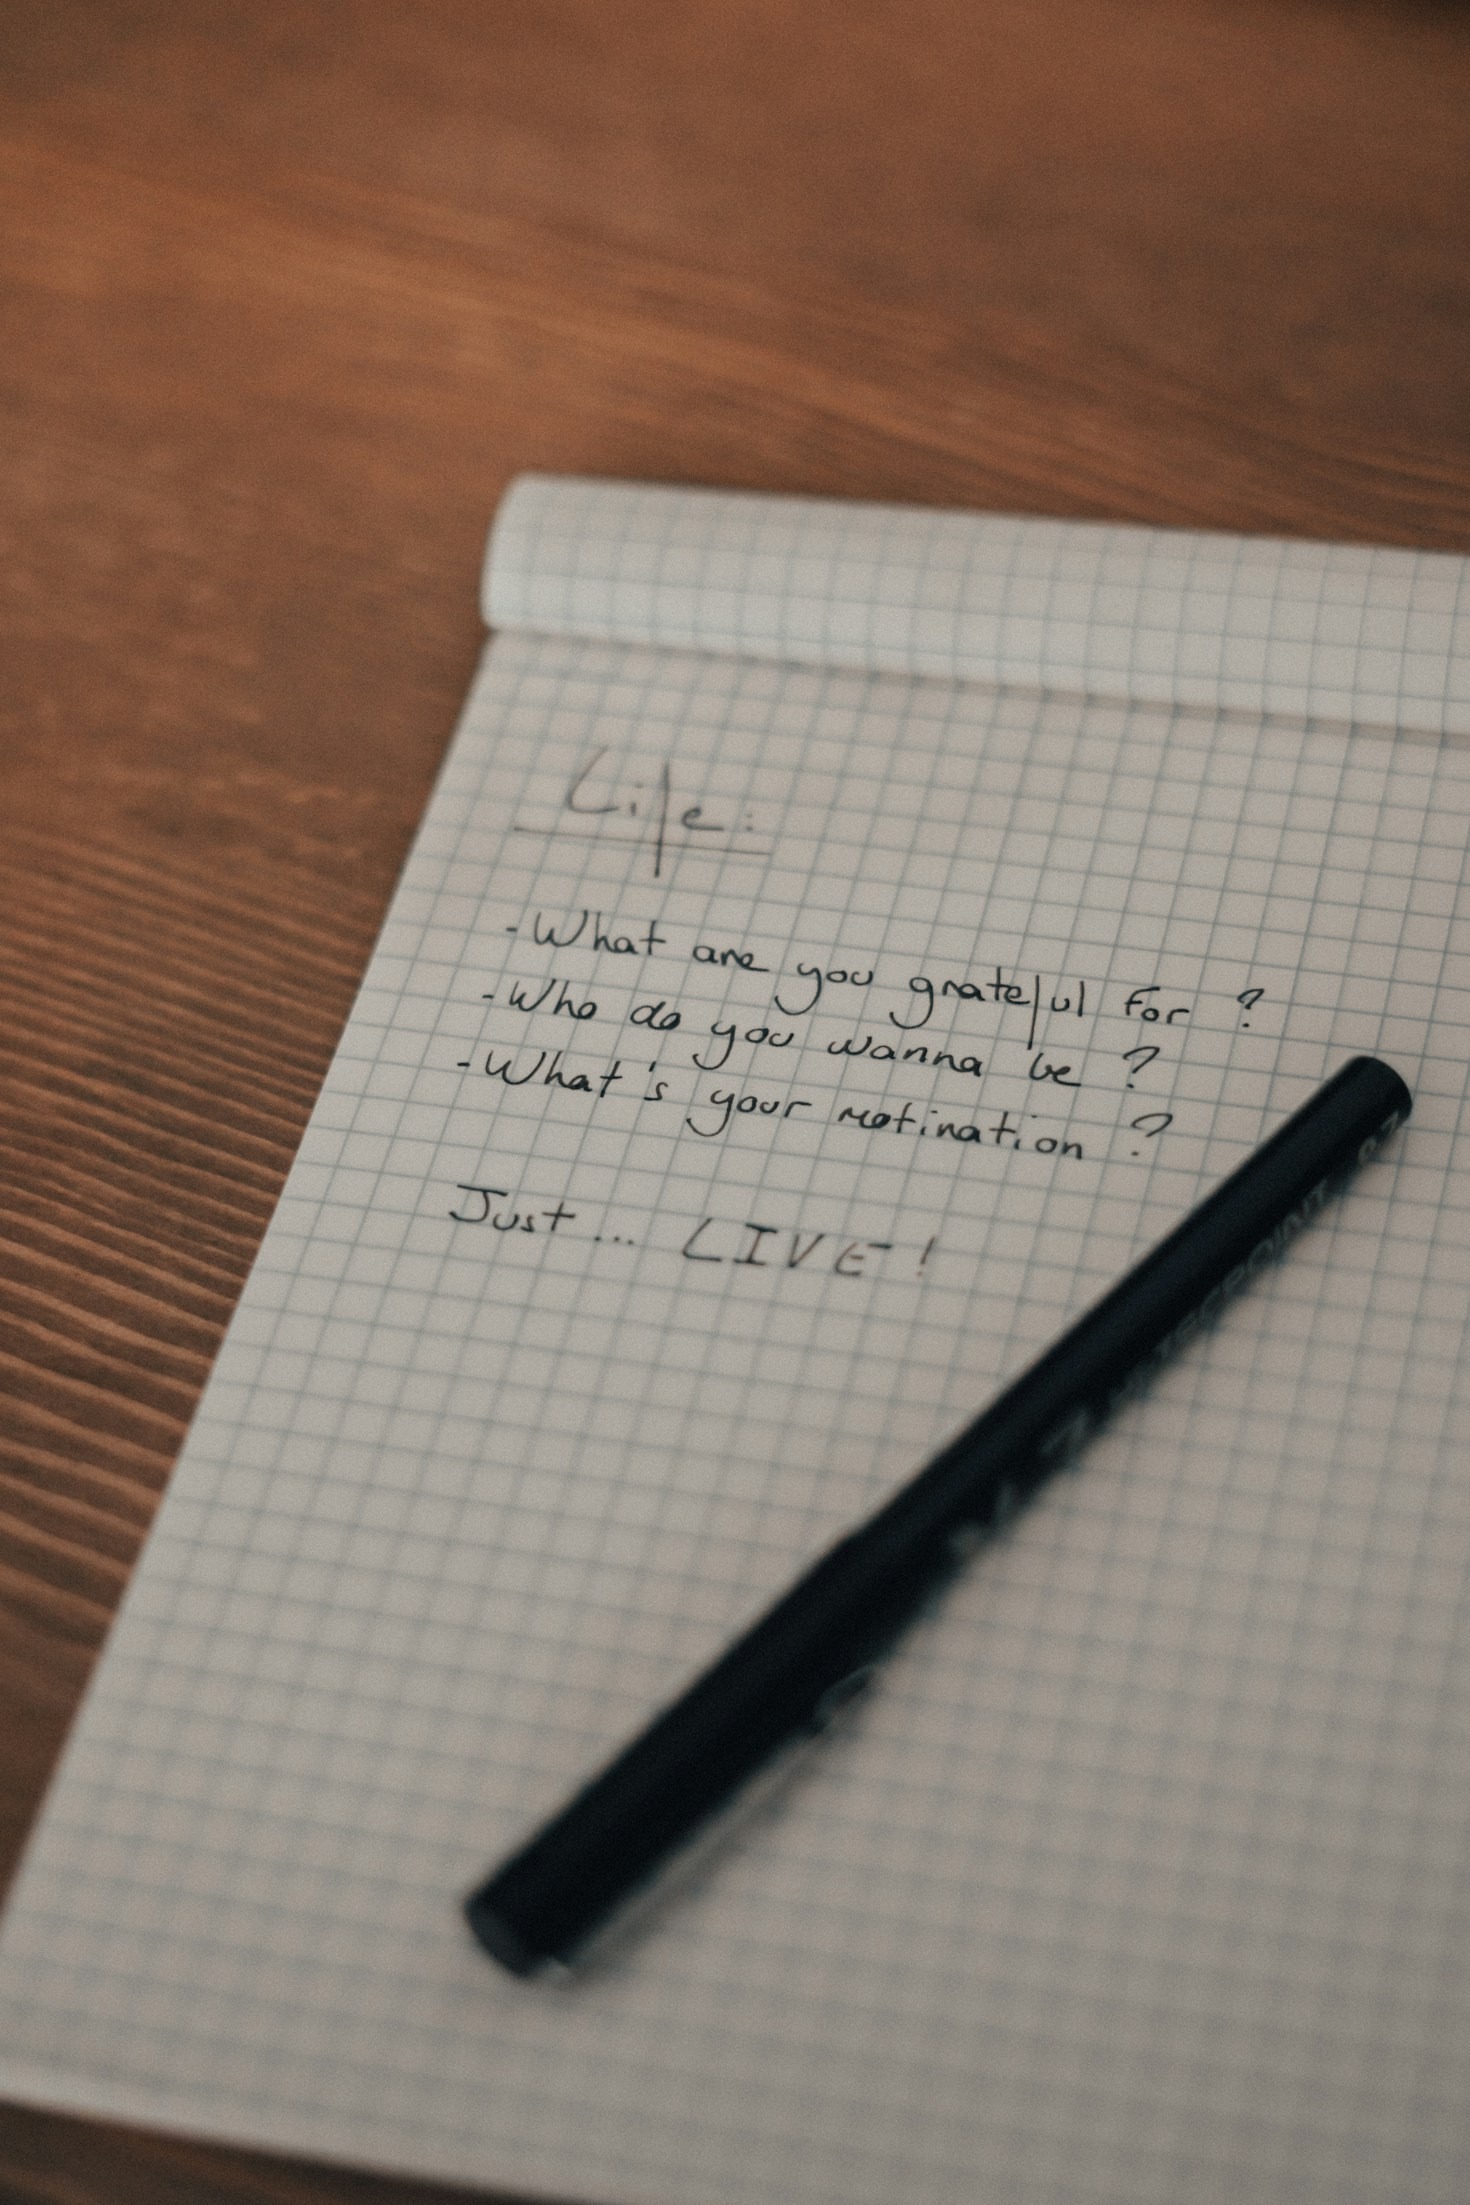 Life:
- What are you grateful for ?
- Who do you wanna be ?
- What's your motivation ?
Just... LIVE !